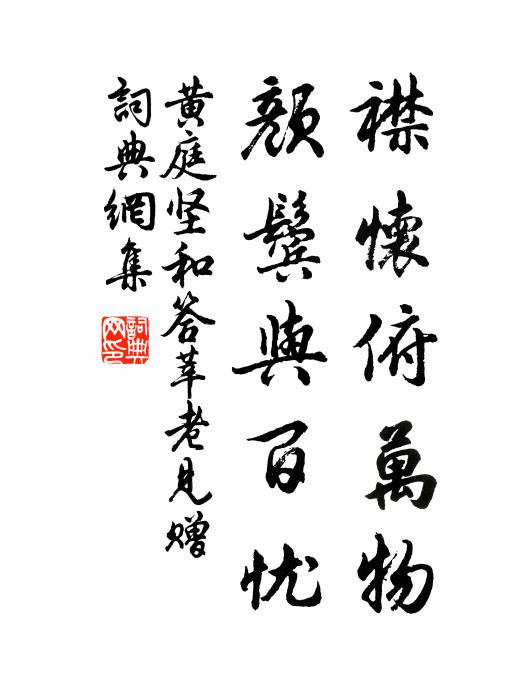 襟懷俯萬物
顏鬢與百忧
黄庭坚和答莘老见赠
詞典網集
詞典网印